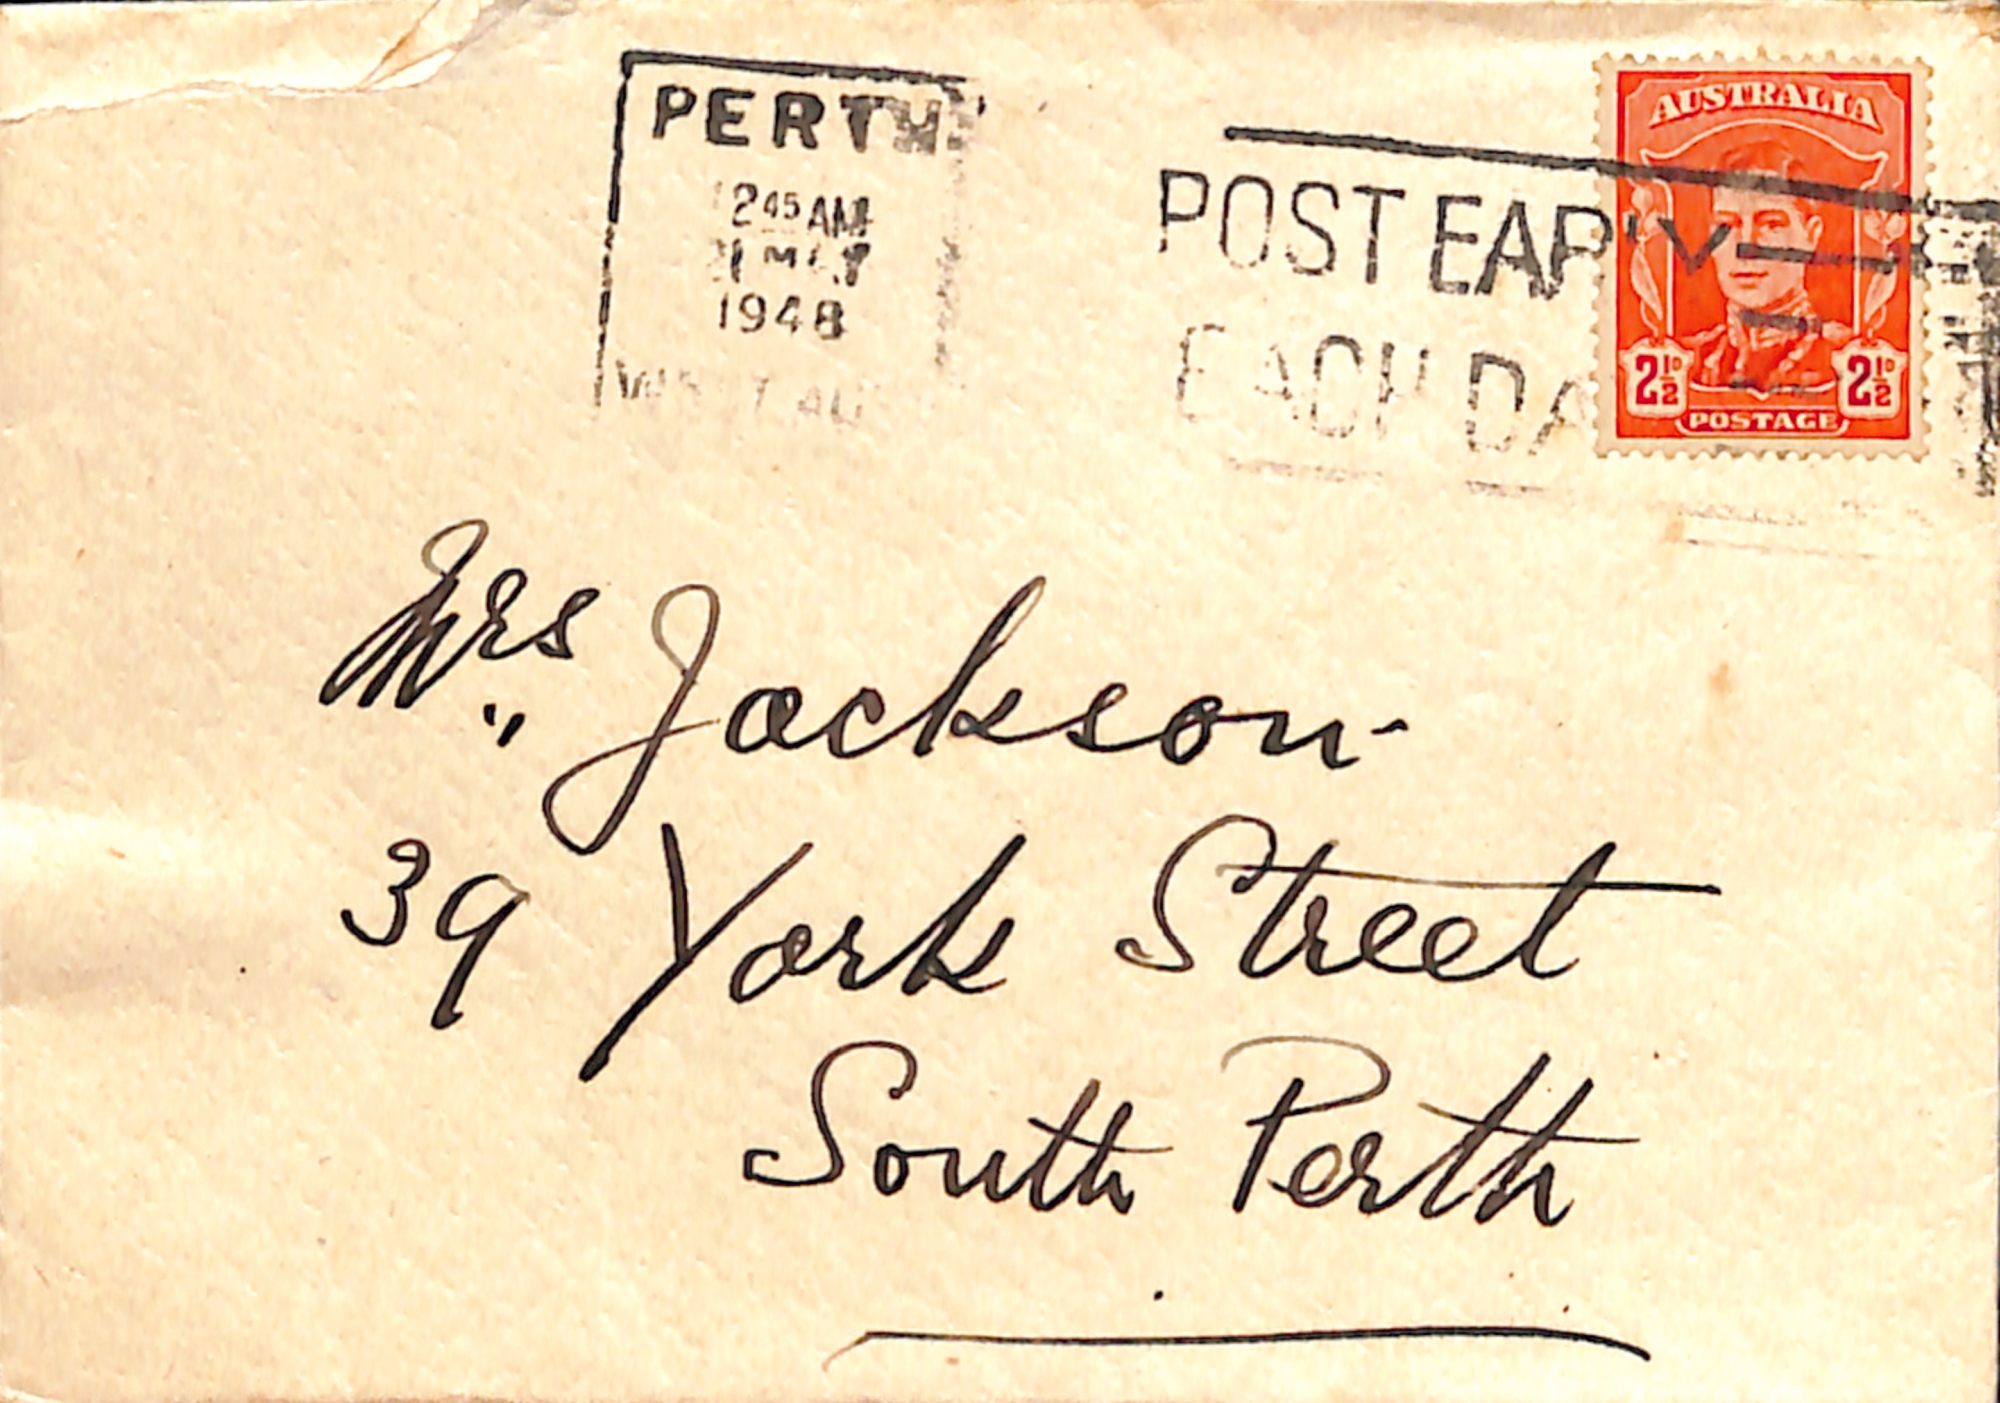 PERTH
1245 AM
21 MAY
1948
WEST AUS
POST EARLY
EACH DA
AUSTRALIA
2½D 2½D
POSTAGE
Mrs Jackson
39 York Street
South Perth